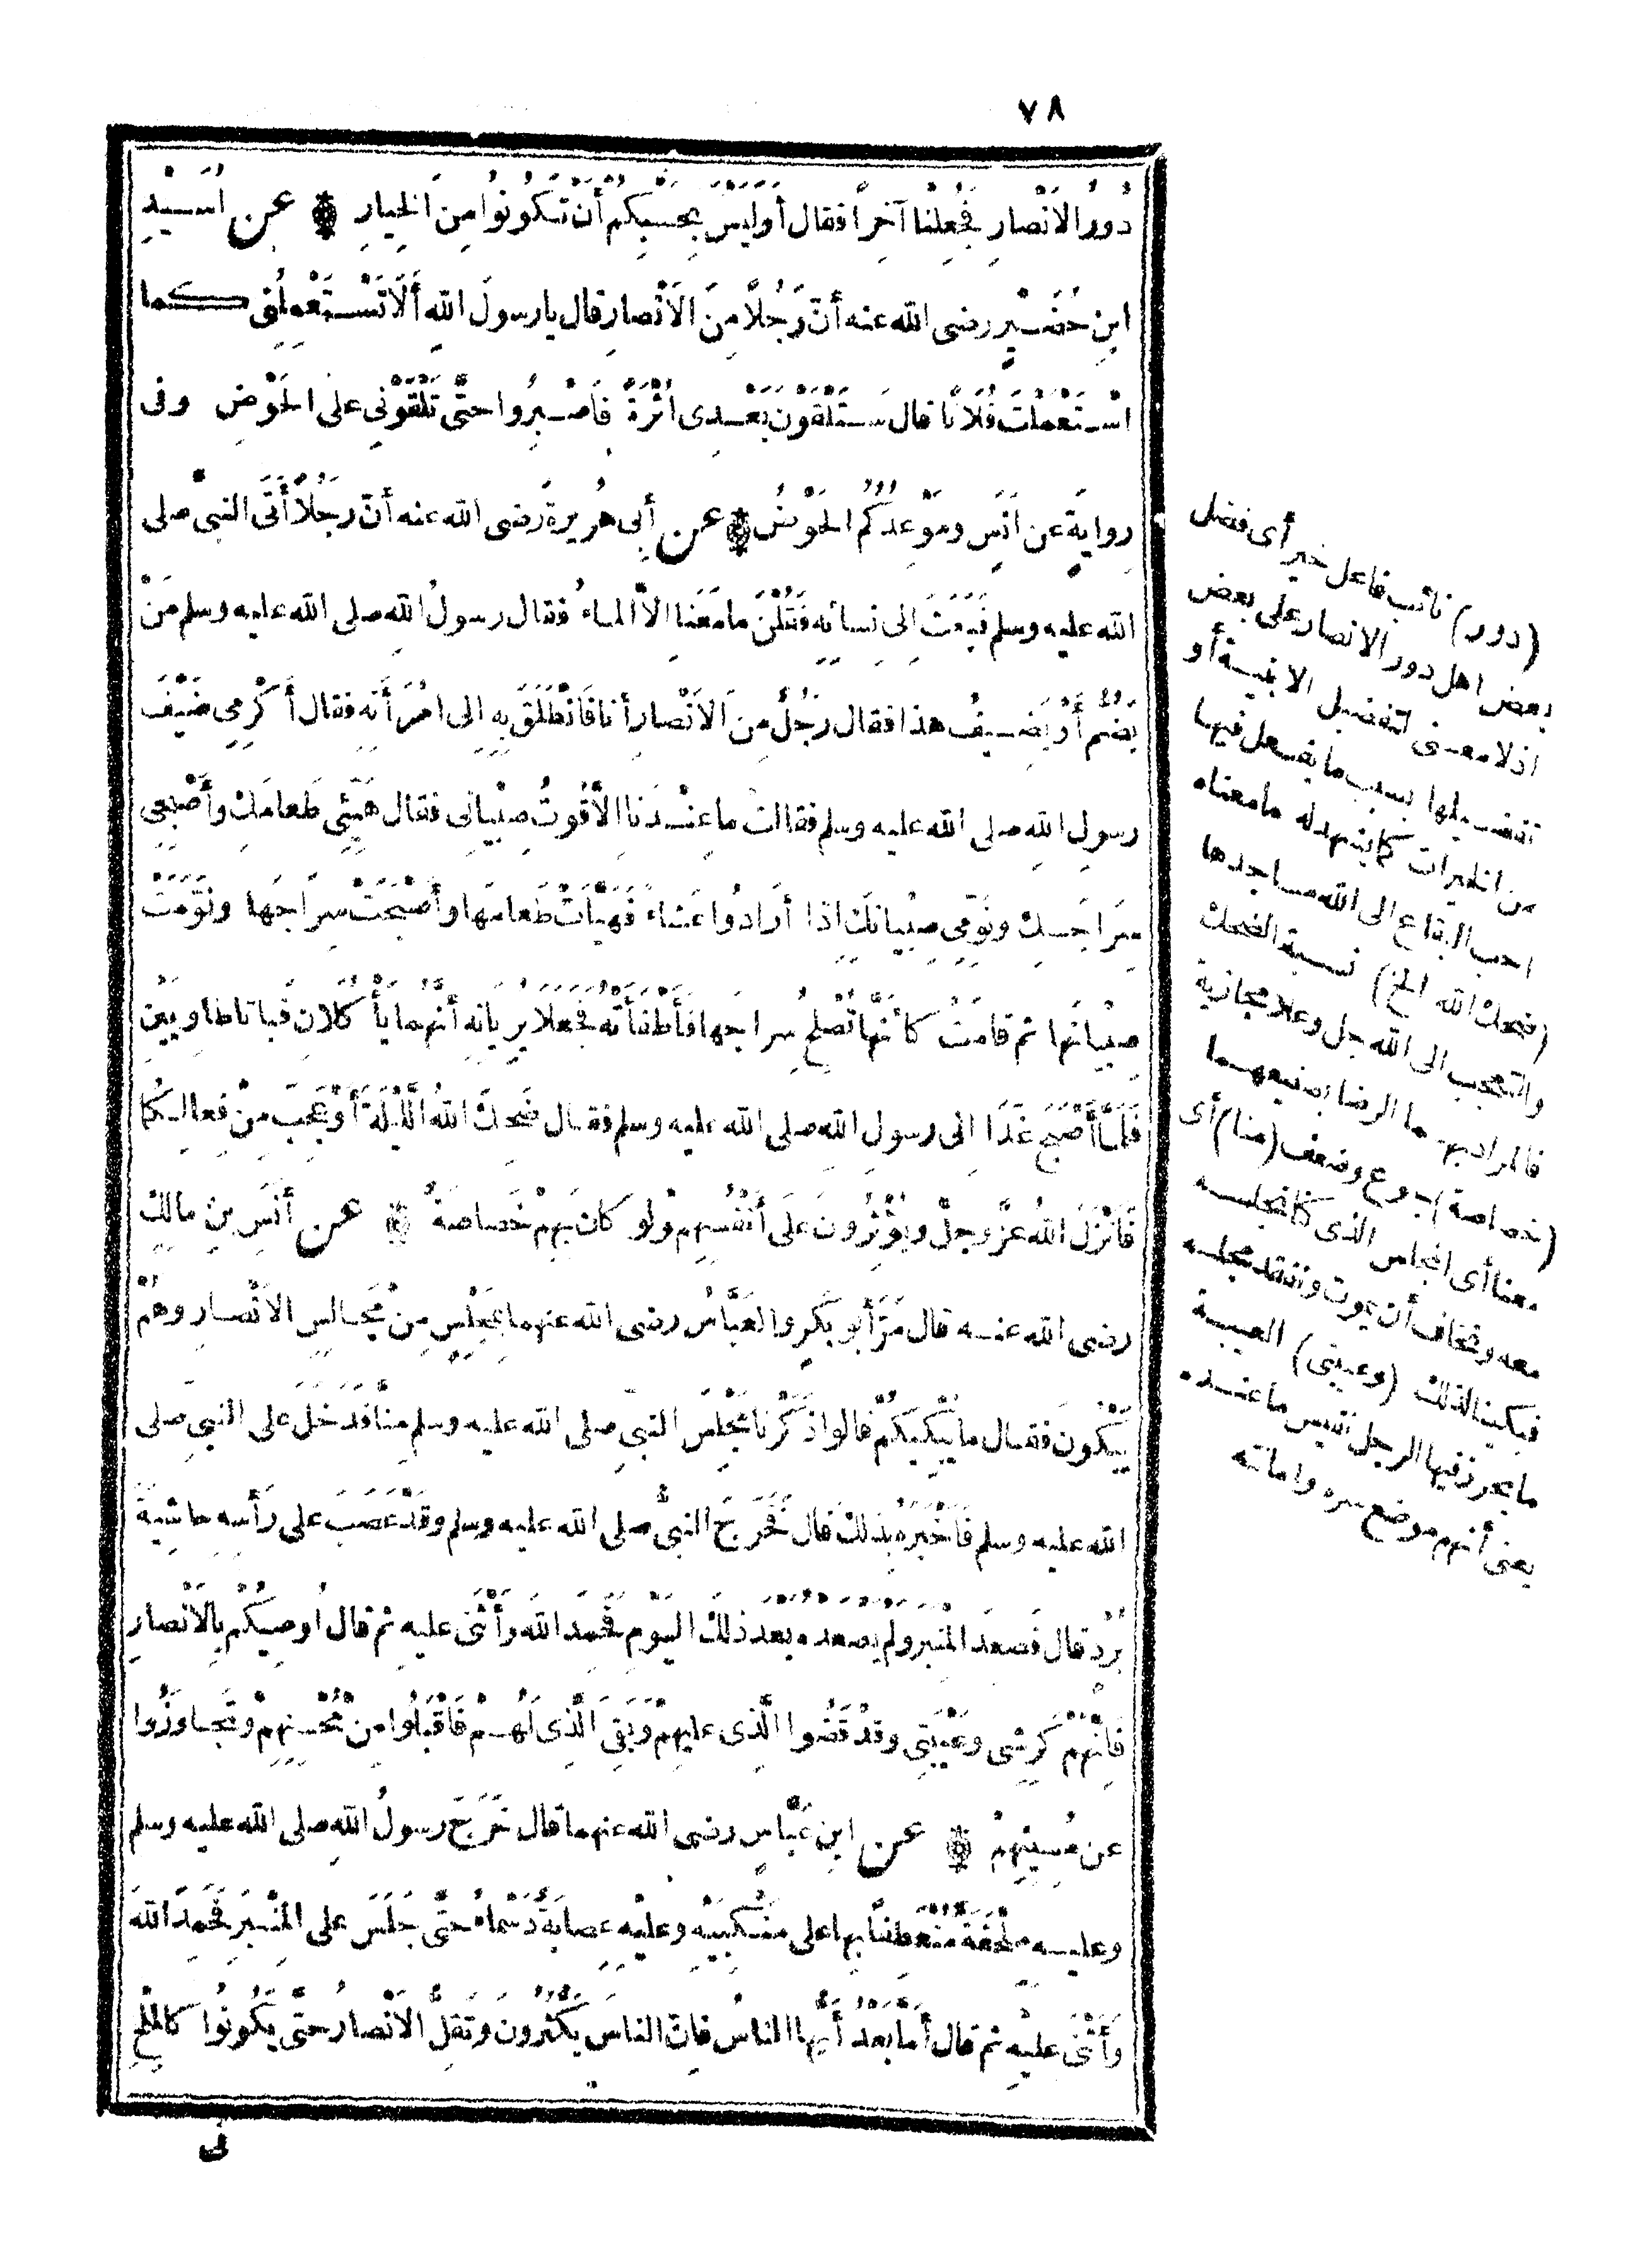 ٧٨
دُورُ الاَنْصارِ فَجُعِلْنا آخِراً فقال أَوَلَيْسَ بِحَسْبِكُمْ أَنْ تَكُونُوا مِنَ الخِيارِ ۞ عن اُسَيْدِ
ابنِ حُضَيْرٍ رضى الله عنه أنّ رَجُلاً مِنَ الاَنْصارِ قال يا رسولَ اللهِ أَلَا تَسْتَعْمِلُنِى كما
اسْتَعْمَلْتَ فُلَاناً قال سَتَلْقَوْنَ بَعْدِى اُثْرَةً فاصْبِرُوا حتَّى تَلْقَوْنِى على الحَوْضِ وفى
رِوايةٍ عن اَنَسٍ ومَوْعِدُكُمُ الحَوْضُ ۞ عن أبى هُريرةَ رضى الله عنه أنّ رجُلاً أَتَى النبىَّ صلى
الله عليه وسلم فَبَعَثَ اِلى نِسائِهِ فَقُلْنَ ما مَعَنا اِلاّ الماءُ فقال رسولُ اللهِ صلى الله عليه وسلم مَنْ
يَضُمُّ أَوْ يُضِيفُ هذا فقال رَجُلٌ مِنَ الاَنْصارِ أنا فَانْطَلَقَ بِهِ اِلى امْرَأَتِهِ فقال أَكْرِمِى ضَيْفَ
رسولِ اللهِ صلى الله عليه وسلم فقالتْ ما عِنْدَنا اِلاَّ قُوتُ صِبْيانِى فقال هَيِّئِى طَعامَكِ وأَصْبِحِى
سِرَاجَكِ ونَوِّمِى صِبْيانَكِ اذا أرادُوا عَشاءً فَهَيَّأَتْ طَعامَها وأَصْبَحَتْ سِرَاجَها ونَوَّمَتْ
صِبْيانَها ثم قامَتْ كأنَّها تُصْلِحُ سِراجَها فَأَطْفَأَتْهُ فَجَعَلا يُرِيَانِهِ أنَّهُما يَأْكُلانِ فَباتا طاوِيَيْنِ
فَلَمَّا أَصْبَحَ غَدَا اِلى رسولِ اللهِ صلى الله عليه وسلم فقال ضَحِكَ اللهُ اللَّيْلَةَ أَوْ عَجِبَ مِنْ فِعالِكُما
فَاَنْزَلَ اللهُ عَزَّ وجلّ ويُؤْثِرُونَ عَلَى أَنْفُسِهِمْ ولو كانَ بِهِمْ خَصاصَةٌ ۞ عن أَنَسِ بنِ مالكٍ
رضى الله عنه قال مَرَّ أبو بَكْرٍ والعَبَّاسُ رضى الله عنهما بِمَجْلِسٍ مِنْ مَجالِسِ الاَنْصارِ وهُمْ
يَبْكُونَ فقال ما يُبْكِيكُمْ قالوا ذَكَرْنا مَجْلِسَ النبىِّ صلى الله عليه وسلم مِنَّا فَدَخَلَ على النبىِّ صلى
الله عليه وسلم فَاَخْبَرَهُ بذلك قال فَخَرَجَ النبىُّ صلى الله عليه وسلم وقَدْ عَصَبَ على رَأسِهِ حاشِيةَ
بُرْدٍ قال فَصَعِدَ المِنْبَرَ ولَمْ يَصْعَدْهُ بعد ذلكَ اليَوْمِ فَحَمِدَ اللهَ وأَثْنَى عليهِ ثم قال اُوصِيكُمْ بِالاَنْصارِ
فَاِنَّهُمْ كَرِشِى وعَيْبَتِى وقدْ قَضَوُا الَّذِى عليهِمْ وبَقِىَ الَّذِى لَهُمْ فَاقْبَلُوا مِنْ مُحْسِنِهِمْ وتَجاوَزُوا
عن مُسِيئِهِمْ ۞ عن ابنِ عَبَّاسٍ رضى الله عنهما قال خَرَجَ رسولُ اللهِ صلى الله عليه وسلم
وعليه مِلْحَفَةٌ مُتَعَطِّفاً بِها على مَنْكِبَيْهِ وعليْهِ عِصابَةٌ دَسْماءُ حتَّى جَلَسَ على المِنْبَرِ فَحَمِدَ اللهَ
وأَثْنَى عليْهِ ثم قال أمَّا بَعْدُ أيُّها الناسُ فانّ الناسَ يَكْثُرُونَ وتَقِلُّ الاَنْصارُ حتَّى يَكُونُوا كالمِلْحِ
فى
(دور) نائب فاعل خير أى فضل
بعض اهل دور الانصار على بعض
اذ لا معنى لتفضيل الابنية أو
تفضيلها بسبب ما يفعل فيها
من الخيرات كما يشهد له ما معناه
احب البقاع الى الله مساجدها
(ضحك الله الخ) نسبة الضحك
والتعجب الى الله جل وعلا مجازية
فالمراد بهما الرضا بصنيعهما
(خصاصة) جوع وضعف (منا) أى
معنا أى المجلس الذى كنا نجلسه
معه ونخاف أن يموت ونفقد مجلسه
فبكينا لذلك (وعيبتى) العيبة
ما يحرز فيها الرجل نفيس ما عنده
يعنى أنهم موضع سره وامانته